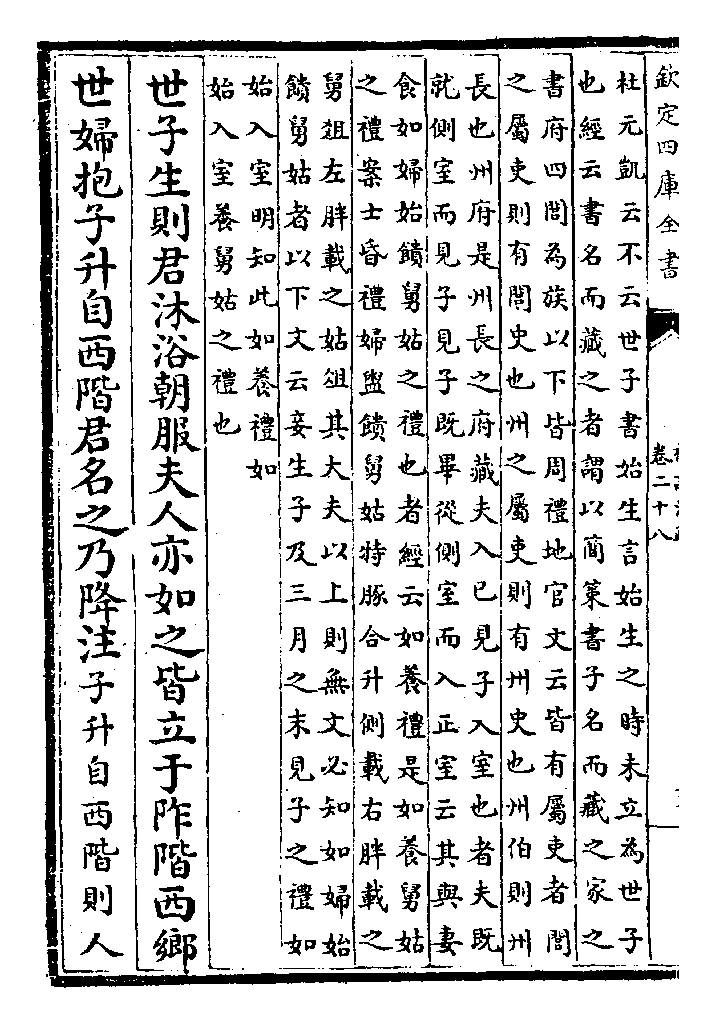 欽定四庫全書
卷二十八
杜元凱云不云世子書始生言始生之時未立為世子
也經云書名而藏之者謂以簡策書子名而藏之家之
書府四閭為族以下皆周禮地官文云皆有屬吏者閭
之屬吏則有閭史也州之屬吏則有州史也州伯則州
長也州府是州長之府藏夫入已見子入室也者夫既
就側室而見子見子既畢從側室而入正室云其與妻
食如婦始饋舅姑之禮也者經云如養禮是如養舅姑
之禮案士昏禮婦盥饋舅姑特豚合升側載右胖載之
舅俎左胖載之姑俎其大夫以上則無文必知如婦始
饋舅姑者以下文云妾生子及三月之末見子之禮如
始入室明知此如養禮如
始入室養舅姑之禮也
世子生則君沐浴朝服夫人亦如之皆立于阼階西鄉
世婦抱子升自西階君名之乃降注子升自西階則人